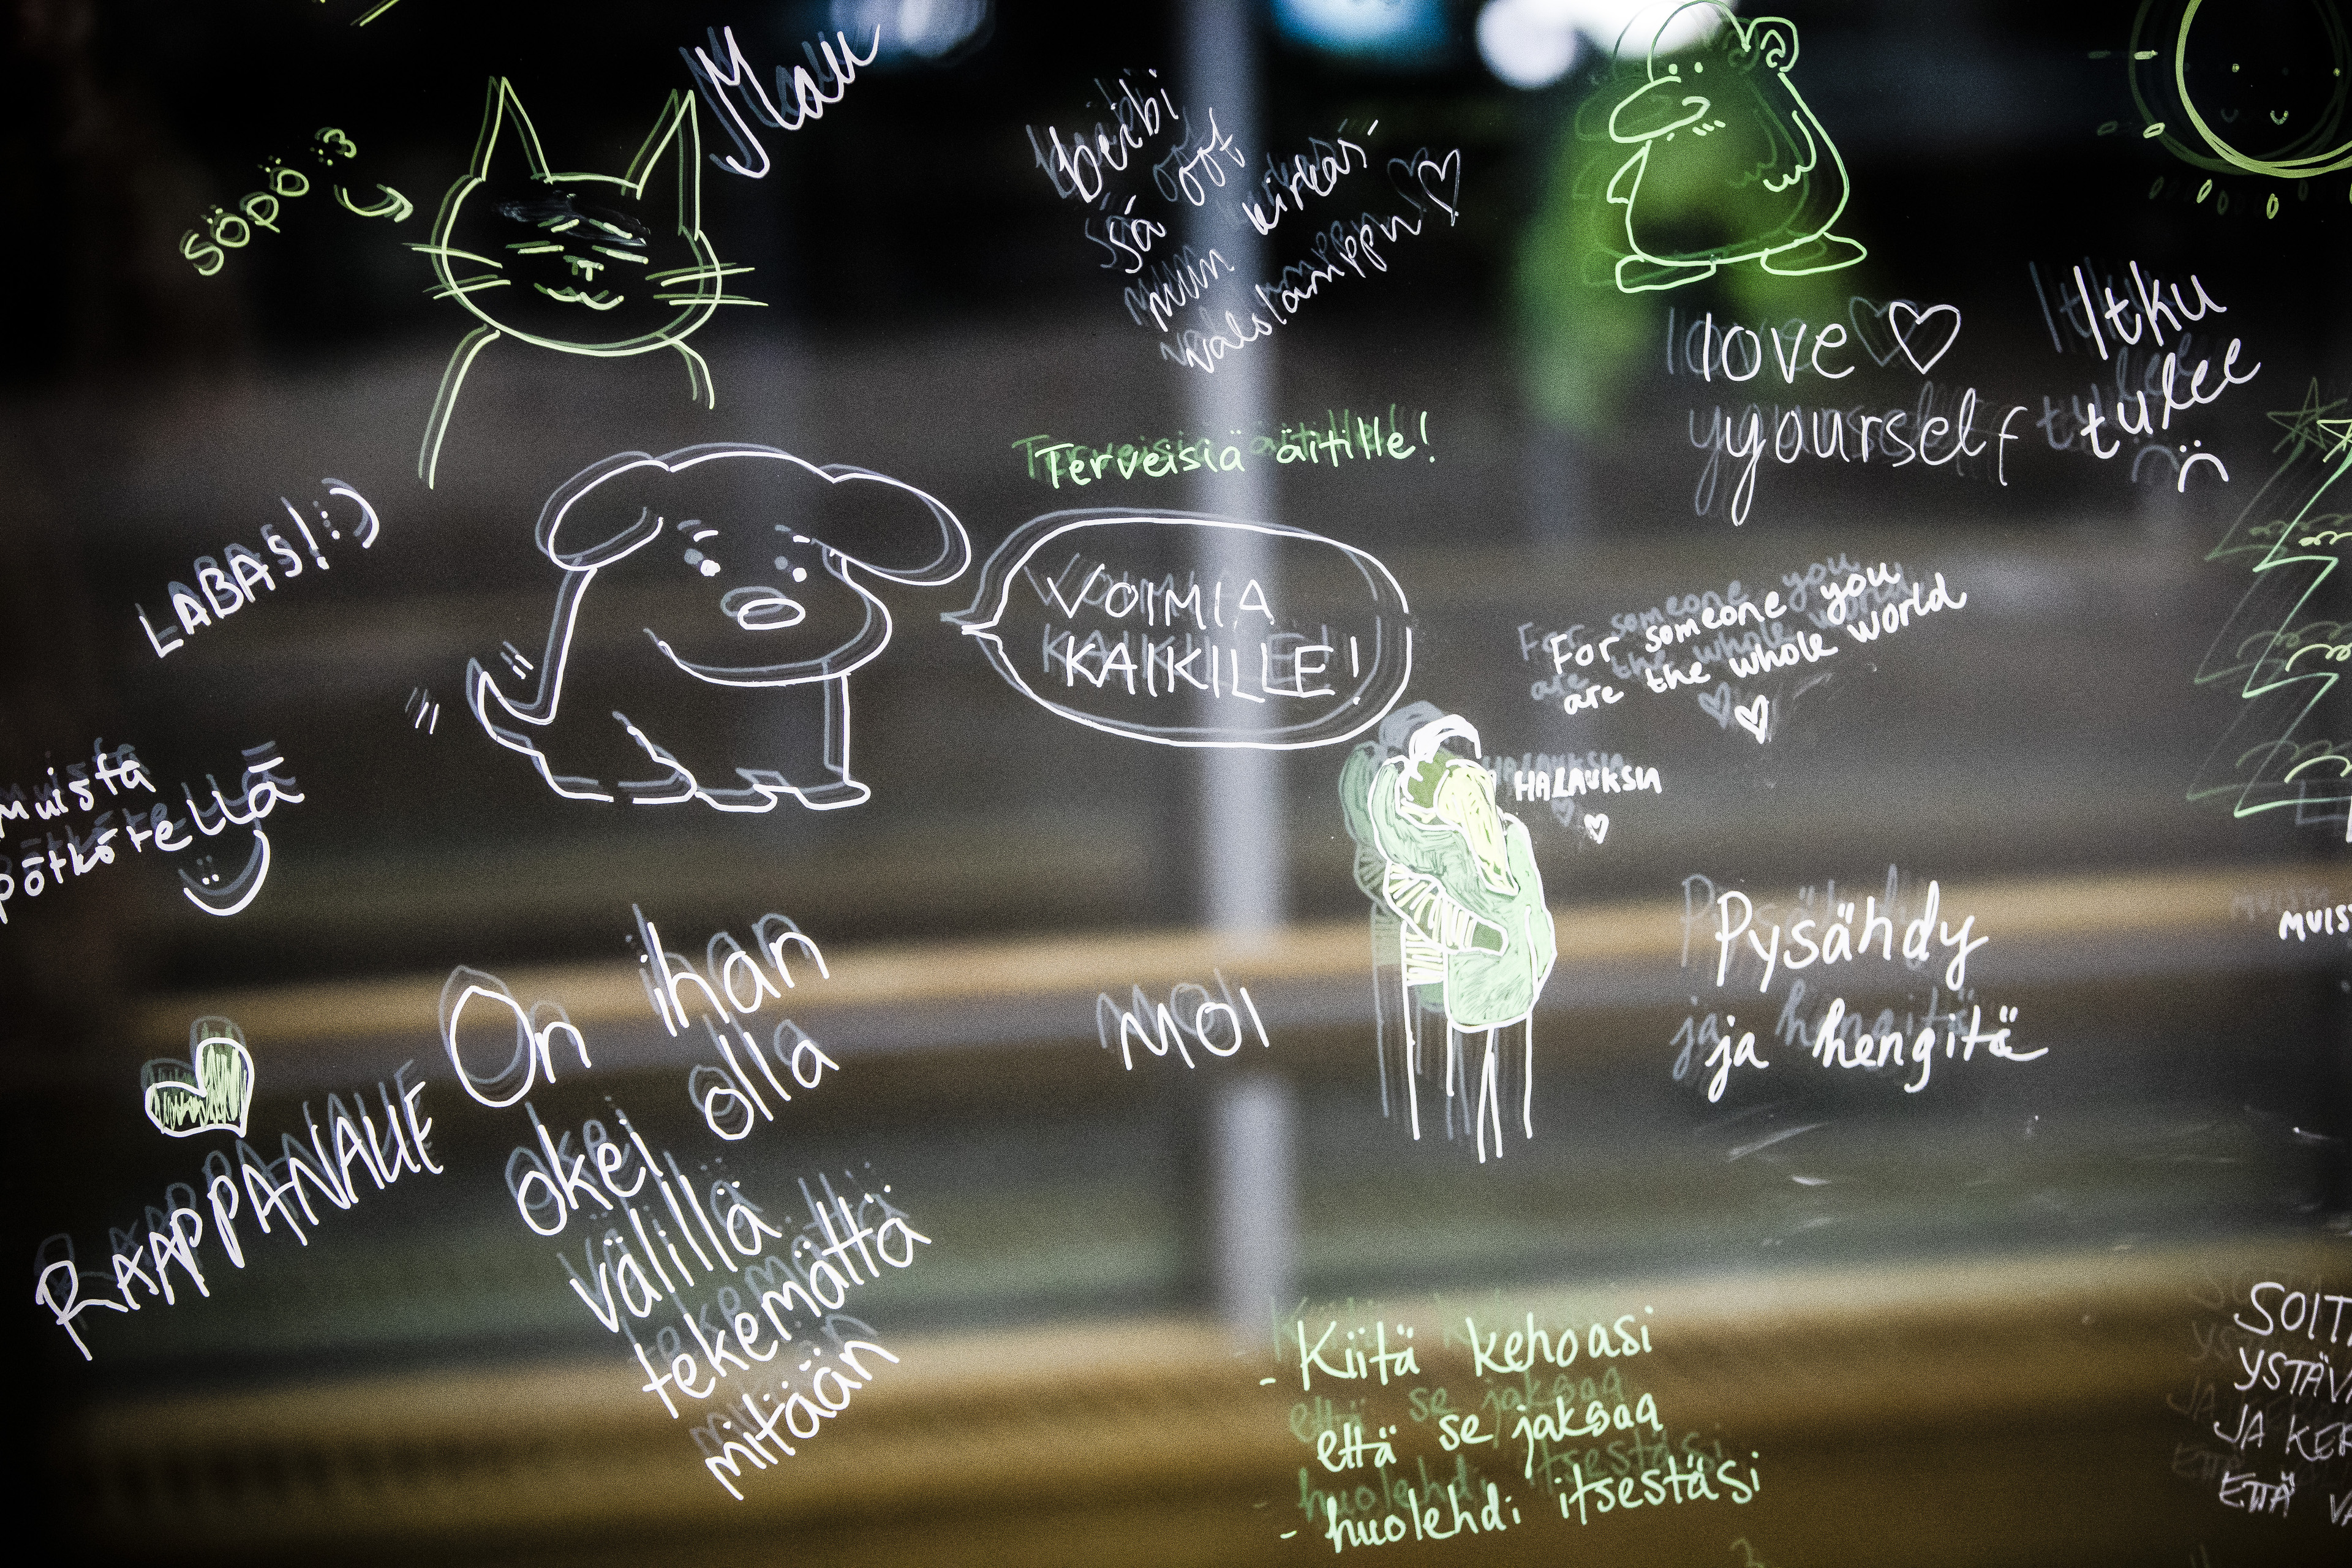 Mau
söpö :3
beibi
sä oot
mun kirkas
valolamppu
love
yourself
Itku
tulee
:(
Terveisiä äitille!
LABAS! :)
VOIMIA
KAIKILLE!
For someone you
are the whole world
HALAUKSIA
muista
pötkötellä
:)
MOI
Pysähdy
ja hengitä
MUIS
RAAPPANALLE
On ihan
okei olla
välillä
tekemättä
mitään
- Kiitä kehoasi
että se jaksaa
- huolehdi itsestäsi
SOIT
YSTÄV
JA KER
ETTÄ VA